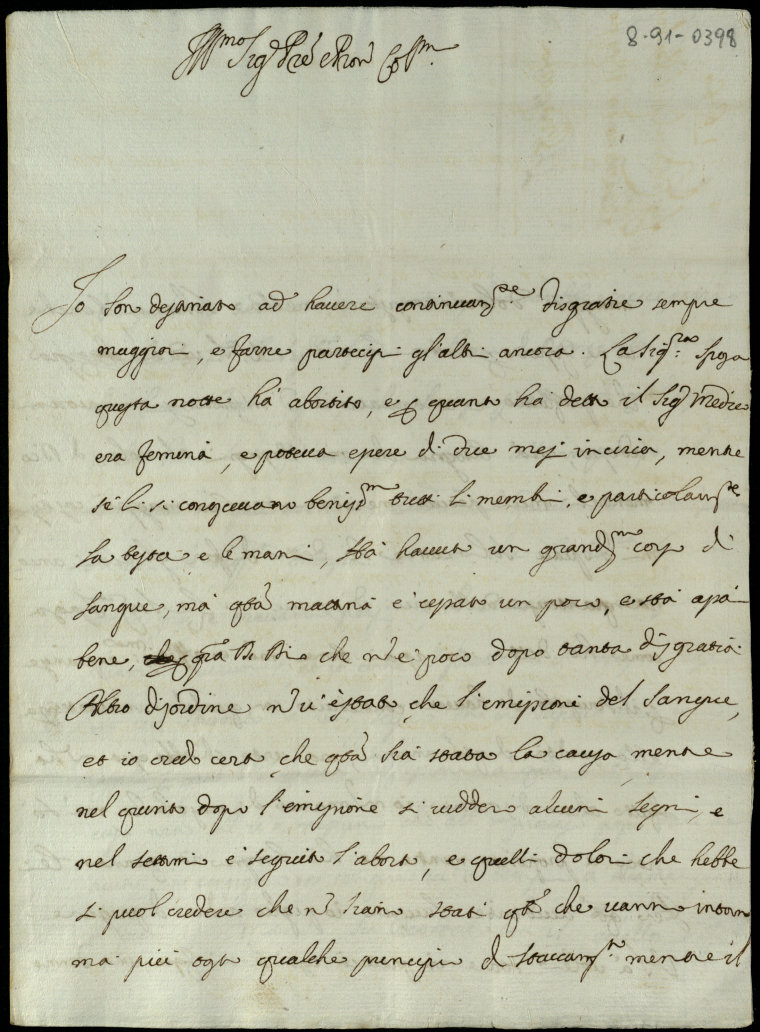 8-91-0398
Ill.mo Sig.r P.re e Pron Col.mo
Io son destinato ad havere continuam.te disgratie sempre
maggiori, e farne partecipi gl'altri ancora. La Sig.ra sposa
questa notte há abortito, e p quanto há detto il Sig.r Medico
era femina, e poteva essere di due mesi in circa, mentre
sé li si conoscevano beniss.mo tutti li membri, e particolarm.te
la testa e le mani, há havuto un grandiss.mo corso di
sangue, má q.ta mattina é cessato un poco, e stá assai
bene, gra D. Dio che nō é poco dopo tanta disgratia.
Altro disordine nō vi é stato che l'emissione del sangue,
et io credo certo che q.ta sia stata la causa mentre
nel quinto dopo l'emissione si viddero alcuni segni, e
nel settimo é seguito l'aborto, e quelli dolori che hebbe
si puol credere che nō siano stati q.li che vanno intorno
ma piú tosto qualche principio di staccam.to mentre il